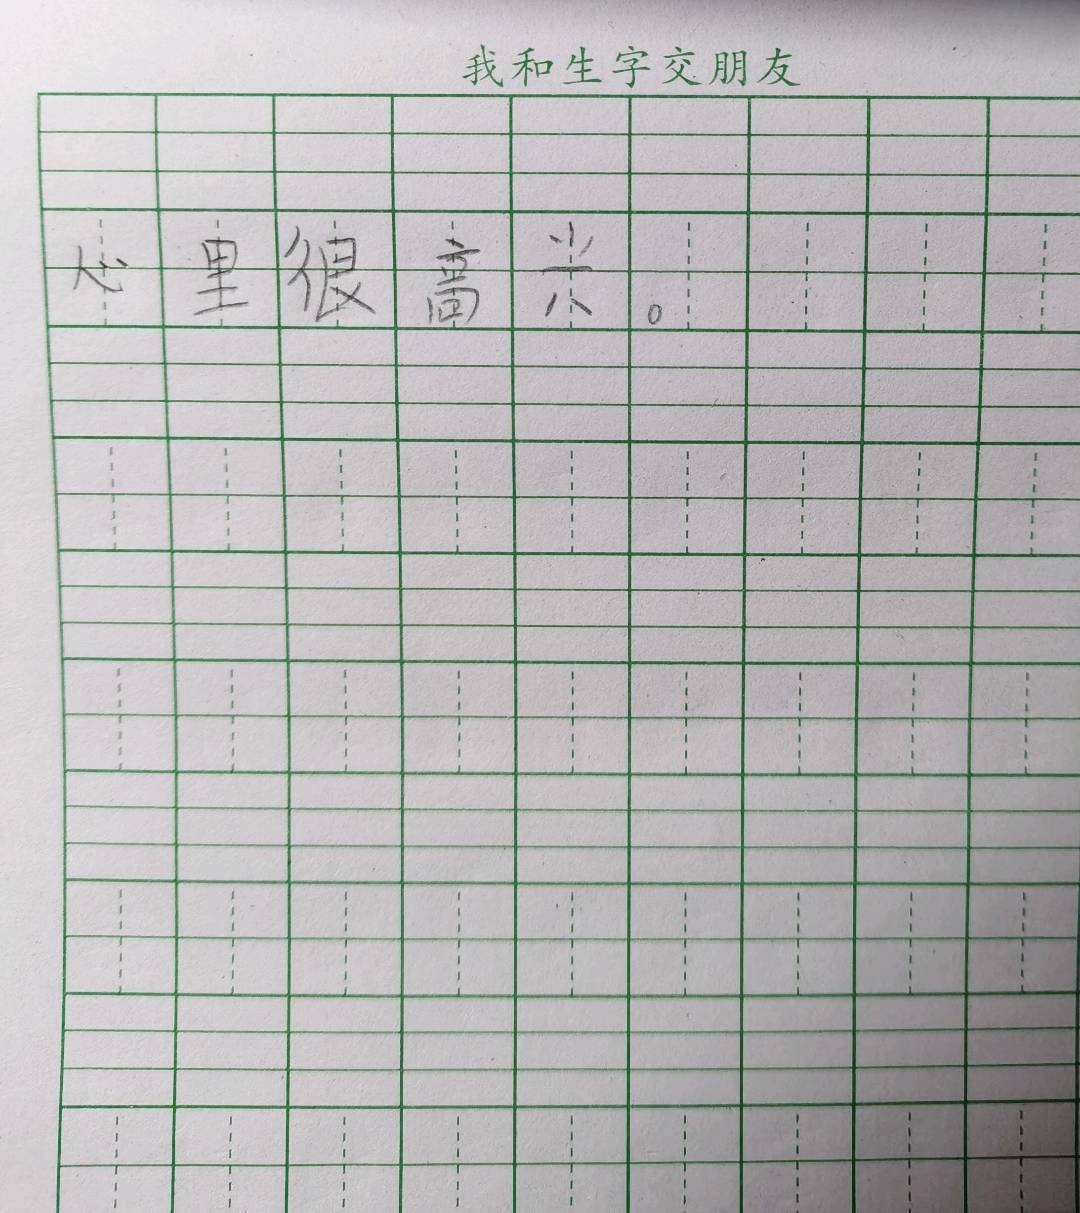 我和生字交朋友
心里很高兴。